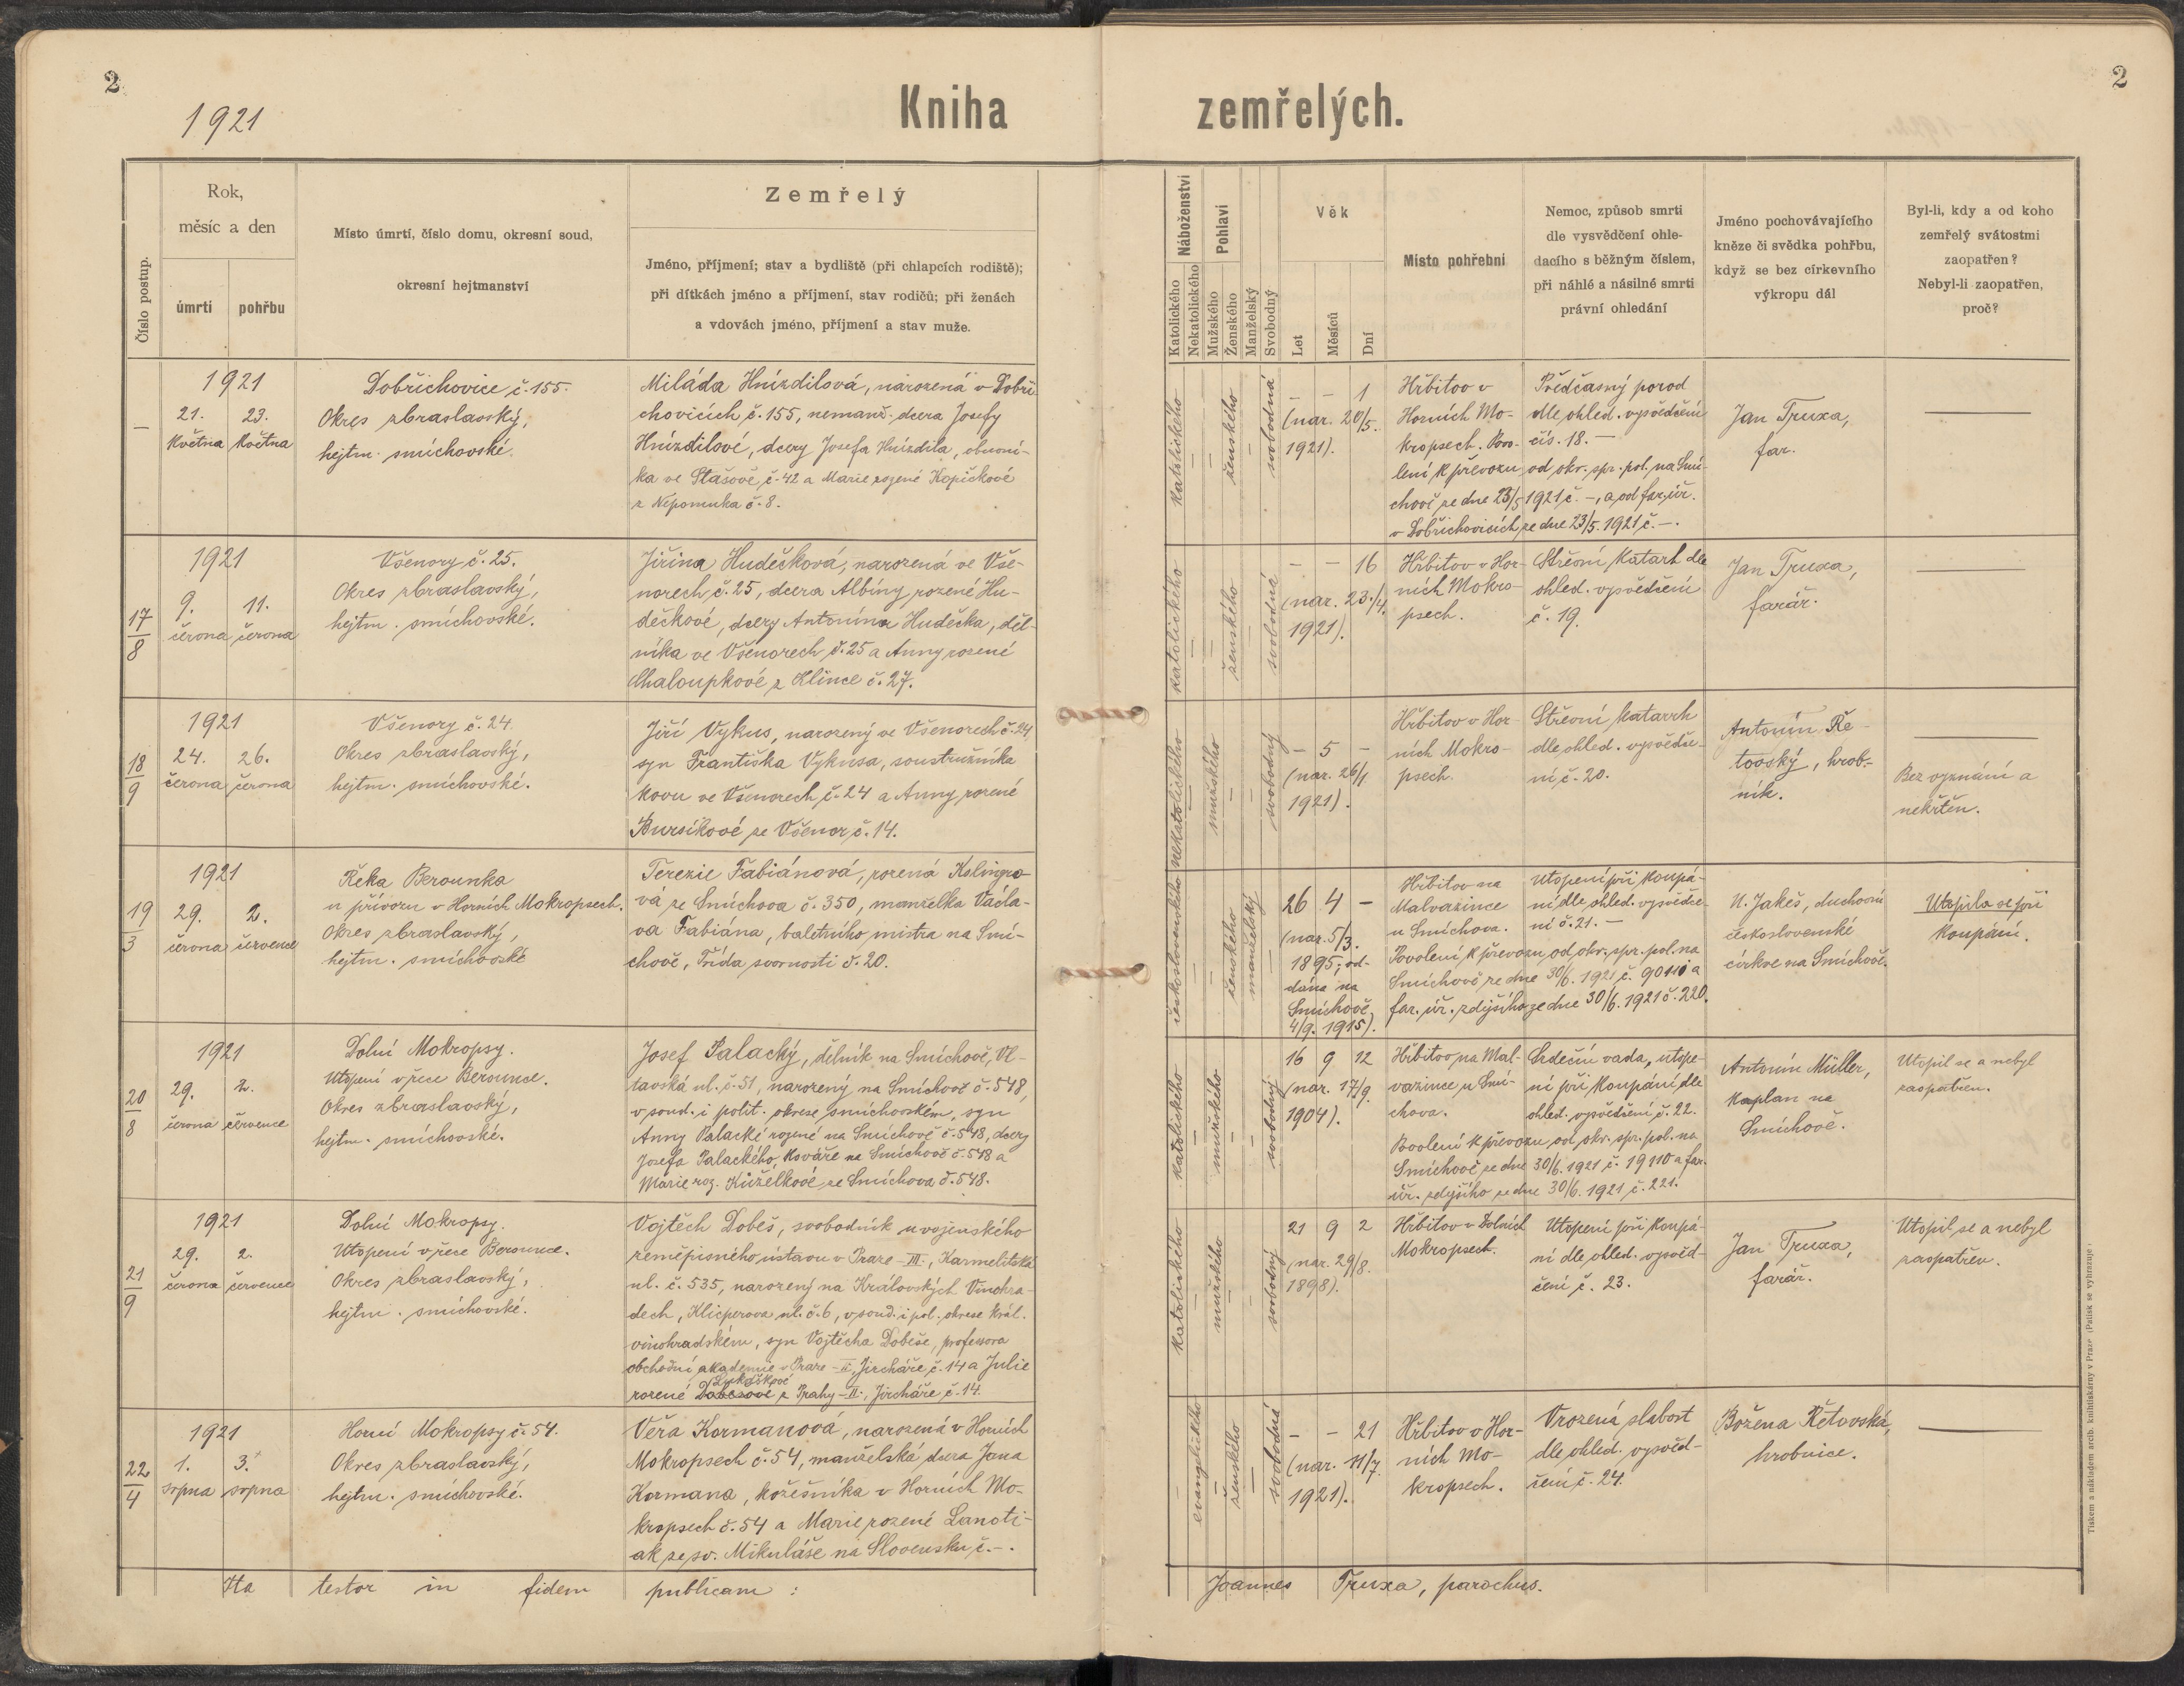 2
1921
Kniha
zemřelých.
2
Číslo postup.
Rok,
měsíc a den
úmrtí
pohřbu
Místo úmrtí, číslo domu, okresní soud,
okresní hejtmanství
Zemřelý
Jméno, příjmení; stav a bydliště (při chlapcích rodiště);
při dítkách jméno a příjmení, stav rodičů; při ženách
a vdovách jméno, příjmení a stav muže.
Náboženství
Katolického
Nekatolického
Pohlaví
Mužského
Ženského
Manželský
Svobodný
Věk
Let
Měsíců
Dní
Místo pohřební
Nemoc, způsob smrti
dle vysvědčení ohle-
dacího s běžným číslem,
při náhlé a násilné smrti
právní ohledání
Jméno pochovávajícího
kněze či svědka pohřbu,
když se bez církevního
výkropu dál
Byl-li, kdy a od koho
zemřelý svátostmi
zaopatřen?
Nebyl-li zaopatřen,
proč?
–
1921
21. 23.
května května
Dobřichovice č. 155.
Okres zbraslavský,
hejtm. smíchovské.
Miláda Hnízdilová, narozená v Dobři-
chovicích č. 155, nemanž. dcera Josefy
Hnízdilové, dcery Josefa Hnízdila, obuvní-
ka ve Stašově č. 42 a Marie rozené Kopičkové
z Nepomuka č. 8.
katolického
ženského
svobodná
– – 1
(nar. 20/5.
1921).
Hřbitov v
Horních Mo-
kropsech. Povo-
lení k převozu od okr. spr. pol. na Smí-
chově ze dne 23/5 1921 č. –, a od far. úř.
v Dobřichovicích ze dne 23/5. 1921 č. –.
Předčasný porod
dle ohled. vysvědčení
čís. 18. –
Jan Truxa,
far.
17/8
1921
9. 11.
června června
Všenory č. 25.
Okres zbraslavský,
hejtm. smíchovské.
Jiřina Hudečková, narozená ve Vše-
norech č. 25, dcera Albíny rozené Hu-
dečkové, dcery Antonína Hudečka, děl-
níka ve Všenorech č. 25 a Anny rozené
Chaloupkové z Klince č. 27.
katolického
ženského
svobodná
– – 16
(nar. 23./4.
1921).
Hřbitov v Hor-
ních Mokro-
psech.
Střevní katarh dle
ohled. vysvědčení
č. 19.
Jan Truxa,
farář.
18/9
1921
24. 26.
června června
Všenory č. 24.
Okres zbraslavský,
hejtm. smíchovské.
Jiří Vykus, narozený ve Všenorech č. 24,
syn Františka Vykusa, soustružníka
kovu ve Všenorech č. 24 a Anny rozené
Bursíkové ze Všenor č. 14.
nekatolického
mužského
svobodný
– 5 –
(nar. 26/1
1921).
Hřbitov v Hor-
ních Mokro-
psech.
Střevní katarrh
dle ohled. vysvědče-
ní č. 20.
Antonín Ře-
tovský, hrob-
ník.
Bez vyznání a
nekřtěn.
19/3
1921
29. 2.
června července
Řeka Berounka
u přívozu v Horních Mokropsech.
Okres zbraslavský,
hejtm. smíchovské
Terezie Fabiánová, rozená Kolingro-
vá ze Smíchova č. 350, manželka Václa-
va Fabiána, baletního mistra na Smí-
chově, Třída svornosti č. 20.
československého
ženského
manželský
26 4 –
(nar. 5/3.
1895; od-
dána na
Smíchově
4/9. 1915).
Hřbitov na
Malvazince
u Smíchova.
Povolení k převozu od okr. spr. pol. na
Smíchově ze dne 30/6. 1921 č. 90110 a
far. úř. zdejšího ze dne 30/6. 1921 č. 220.
Utopení při koupá-
ní dle ohled. vysvědče-
ní č. 21. –
U. Jakeš, duchovní
československé
církve na Smíchově.
Utopila se při
koupání.
20/8
1921
29. 2.
června července
Dolní Mokropsy.
Utopení v řece Berounce.
Okres zbraslavský,
hejtm. smíchovské.
Josef Palacký, dělník na Smíchově, Vl-
tavská ul. č. 51, narozený na Smíchově č. 548,
v soud. i polit. okrese smíchovském, syn
Anny Palacké rozené na Smíchově č. 548, dcery
Josefa Palackého, kováře na Smíchově č. 548 a
Marie roz. Kuželkové ze Smíchova č. 548.
katolického
mužského
svobodný
16 9 12
(nar. 17/9.
1904).
Hřbitov na Mal-
vazince u Smí-
chova.
Povolení k převozu od okr. spr. pol. na
Smíchově ze dne 30/6. 1921 č. 19110 a far.
úř. zdejšího ze dne 30/6. 1921 č. 221.
Srdeční vada, utope-
ní při koupání dle
ohled. vysvědčení č. 22.
Antonín Müller,
kaplan na
Smíchově.
Utopil se a nebyl
zaopatřen.
21/9
1921
29. 2.
června července
Dolní Mokropsy.
Utopení v řece Berounce.
Okres zbraslavský,
hejtm. smíchovské.
Vojtěch Dobeš, svobodník u vojenského
zeměpisného ústavu v Praze – III., Karmelitská
ul. č. 535, narozený na Královských Vinohra-
dech, Klicperova ul. č. 6, v soud. i pol. okrese král.
vinohradském, syn Vojtěcha Dobeše, professora
obchodní akademie v Praze – II, Jircháře, č. 14 a Julie
rozené Dobešové z Prahy – II., Jircháře č. 14.
katolického
mužského
svobodný
21 9 2
(nar. 29/8.
1898).
Hřbitov v Dolních
Mokropsech.
Utopení při koupá-
ní dle ohled. vysvěd-
čení č. 23.
Jan Truxa,
farář.
Utopil se a nebyl
zaopatřen.
22/4
1921
1. 3.
srpna srpna
Horní Mokropsy č. 54.
Okres zbraslavský,
hejtm. smíchovské.
Věra Kormanová, narozená v Horních
Mokropsech č. 54, manželská dcera Jana
Kormana, kožešníka v Horních Mo-
kropsech č. 54 a Marie rozené Lanoti-
ak ze sv. Mikuláše na Slovensku č. –.
evangelického
ženského
svobodná
– – 21
(nar. 11/7.
1921).
Hřbitov v Hor-
ních Mo-
kropsech.
Vrozená slabost
dle ohled. vysvěd-
čení č. 24.
Božena Řetovská,
hrobnice.
Ita testor in fidem publicam :
Joannes Truxa, parochus.
Tiskem a nákladem arcib. knihtiskárny v Praze (Patisk se vyhrazuje)